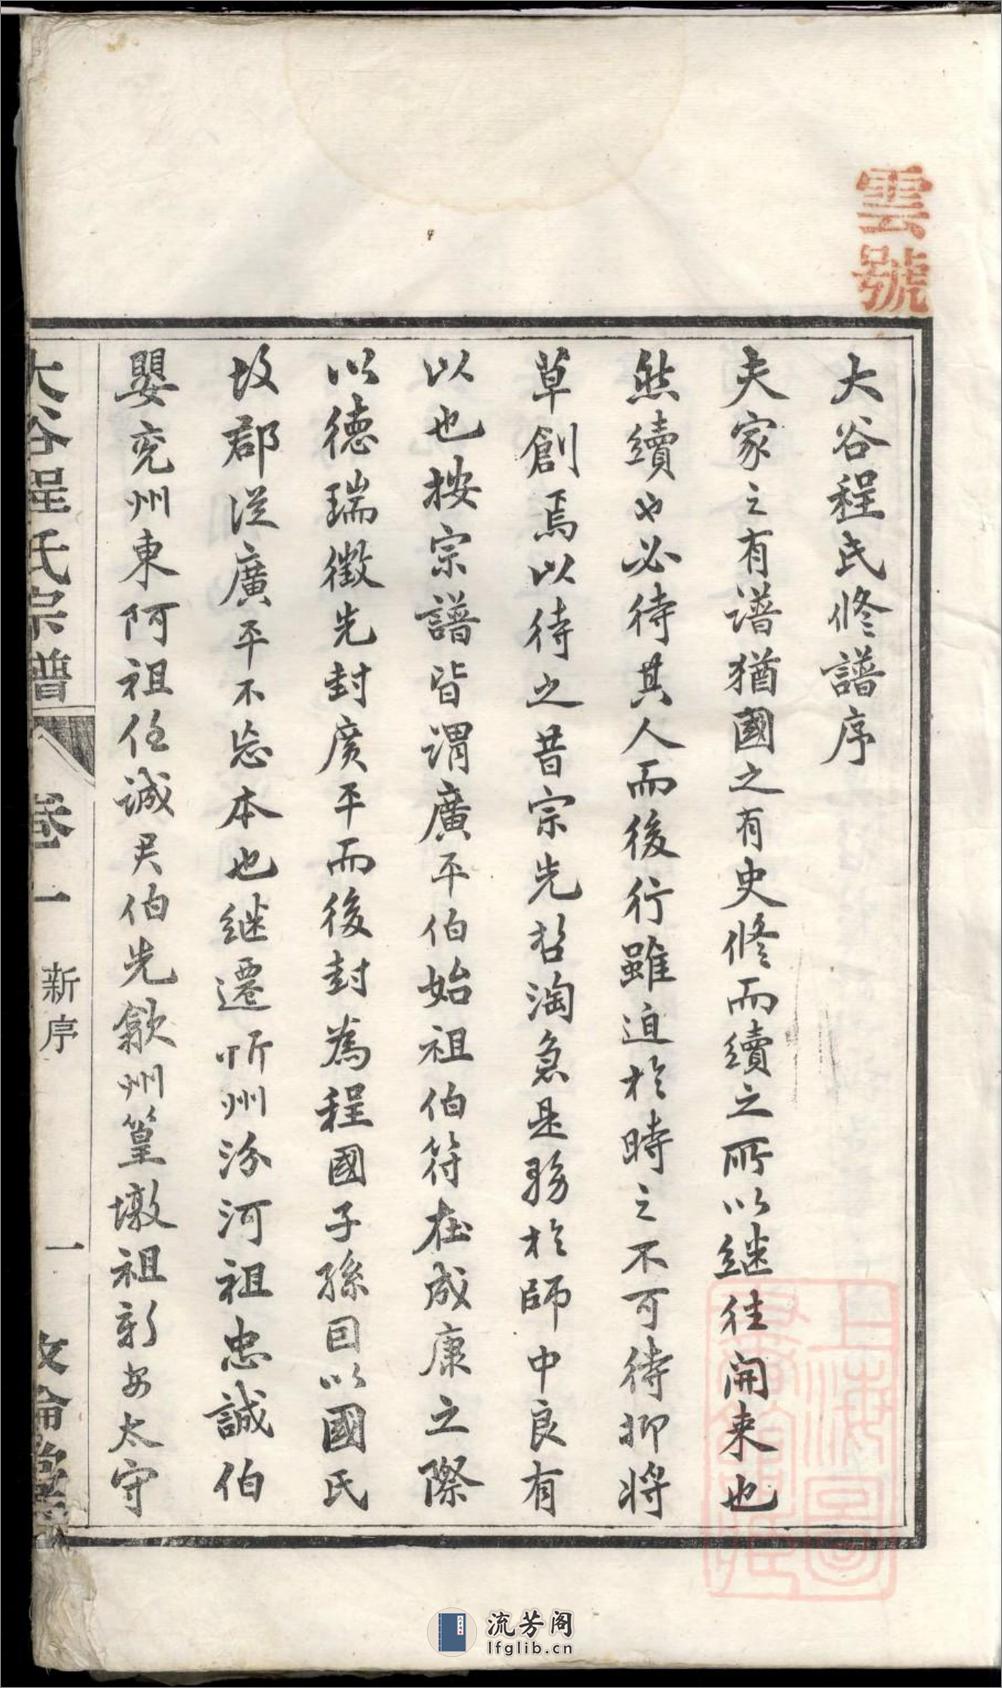 雲號
大谷程氏修譜序
夫家之有譜猶國之有史修而續之所以継往開来也
然續也必待其人而後行雖迫於時之不可待抑将
草創焉以待之昔宗先哲淘急是務於師中良有
以也按宗譜皆謂廣平伯始祖伯符在成康之際
以德瑞徵先封廣平而後封為程國子孫因以國氏
故郡従廣平不忘本也継遷听州汾河祖忠誠伯
嬰兖州東阿祖任誠君伯先歙州篁墩祖新安太守
大谷程氏宗譜
卷一
新序
一
敦倫堂
上海圖書館藏
流芳阁
lfglib.cn